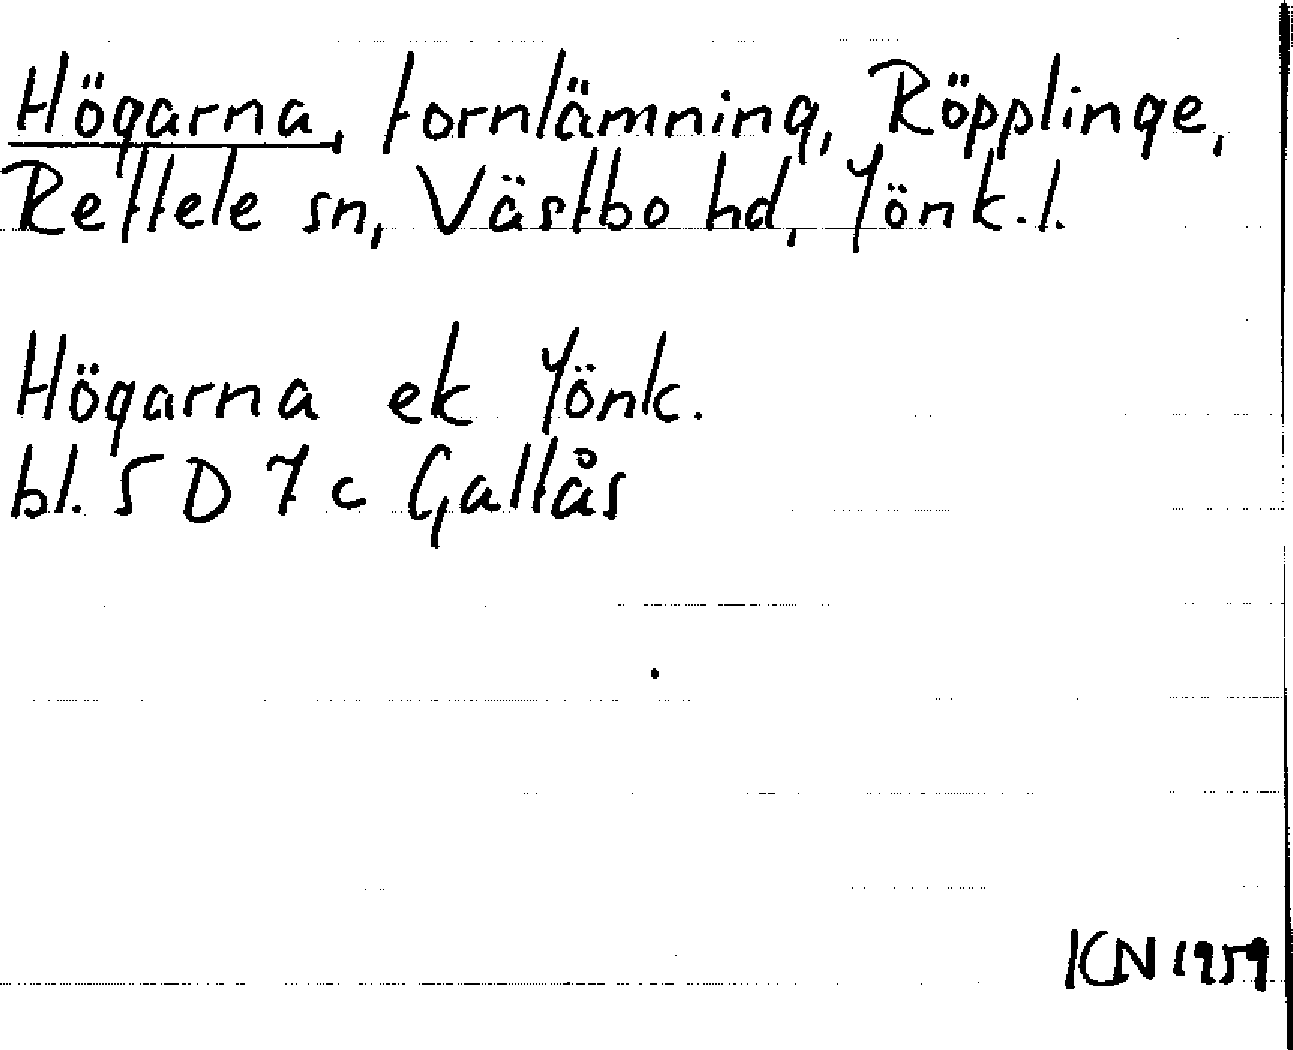 Högarna, fornlämning, Röpplinge,
Reftele sn, Västbo hd, Jönk.l.
Högarna ek Jönk.
bl. 5 D 7 c Gallås
KN 1959